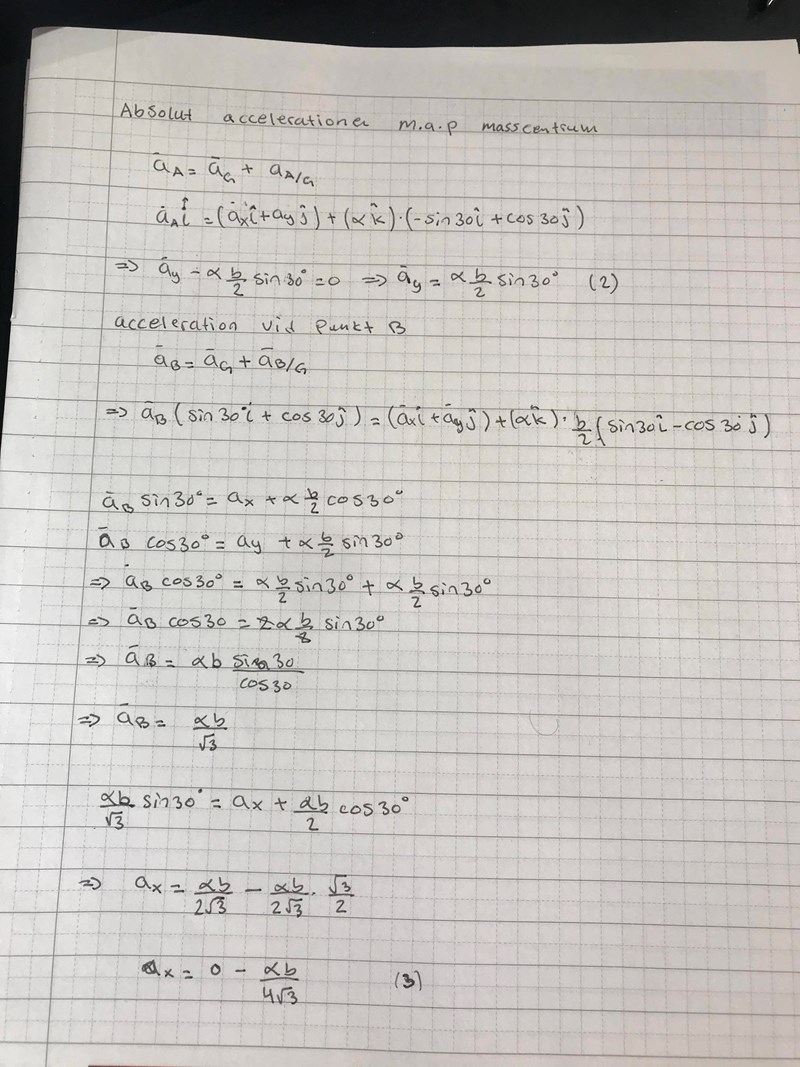 Absolut accelerationer m.a.p masscentrum
āA = āG + aA/G
āA î = (āx î + ay ĵ) + (α k̂) · (-sin30 î + cos30 ĵ)
=> āy - α b/2 sin30° = 0 => āy = α b/2 sin30° (2)
acceleration vid punkt B
āB = āG + āB/G
=> āB (sin30° î + cos30 ĵ) = (āx î + āy ĵ) + (α k̂) · b/2 (sin30 î - cos30 ĵ)
āB sin30° = ax + α b/2 cos30°
āB cos30° = ay + α b/2 sin30°
=> āB cos30° = α b/2 sin30° + α b/2 sin30°
=> āB cos30 = 2α b/2 sin30°
=> āB = αb sin30/cos30
=> āB = αb/√3
αb/√3 sin30° = ax + αb/2 cos30°
=> ax = αb/2√3 - αb/2√3 · √3/2
ax = 0 - αb/4√3 (3)